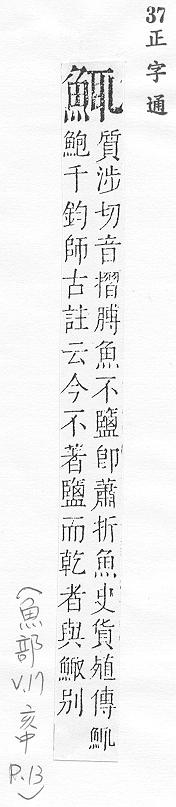 37
正字通
鮿
質涉切音摺膊魚不鹽卽蕭折魚史貨殖傳鮿
鮑千鈞師古註云今不著鹽而乾者與鯫别
(魚部 V.17 亥中 P.13)